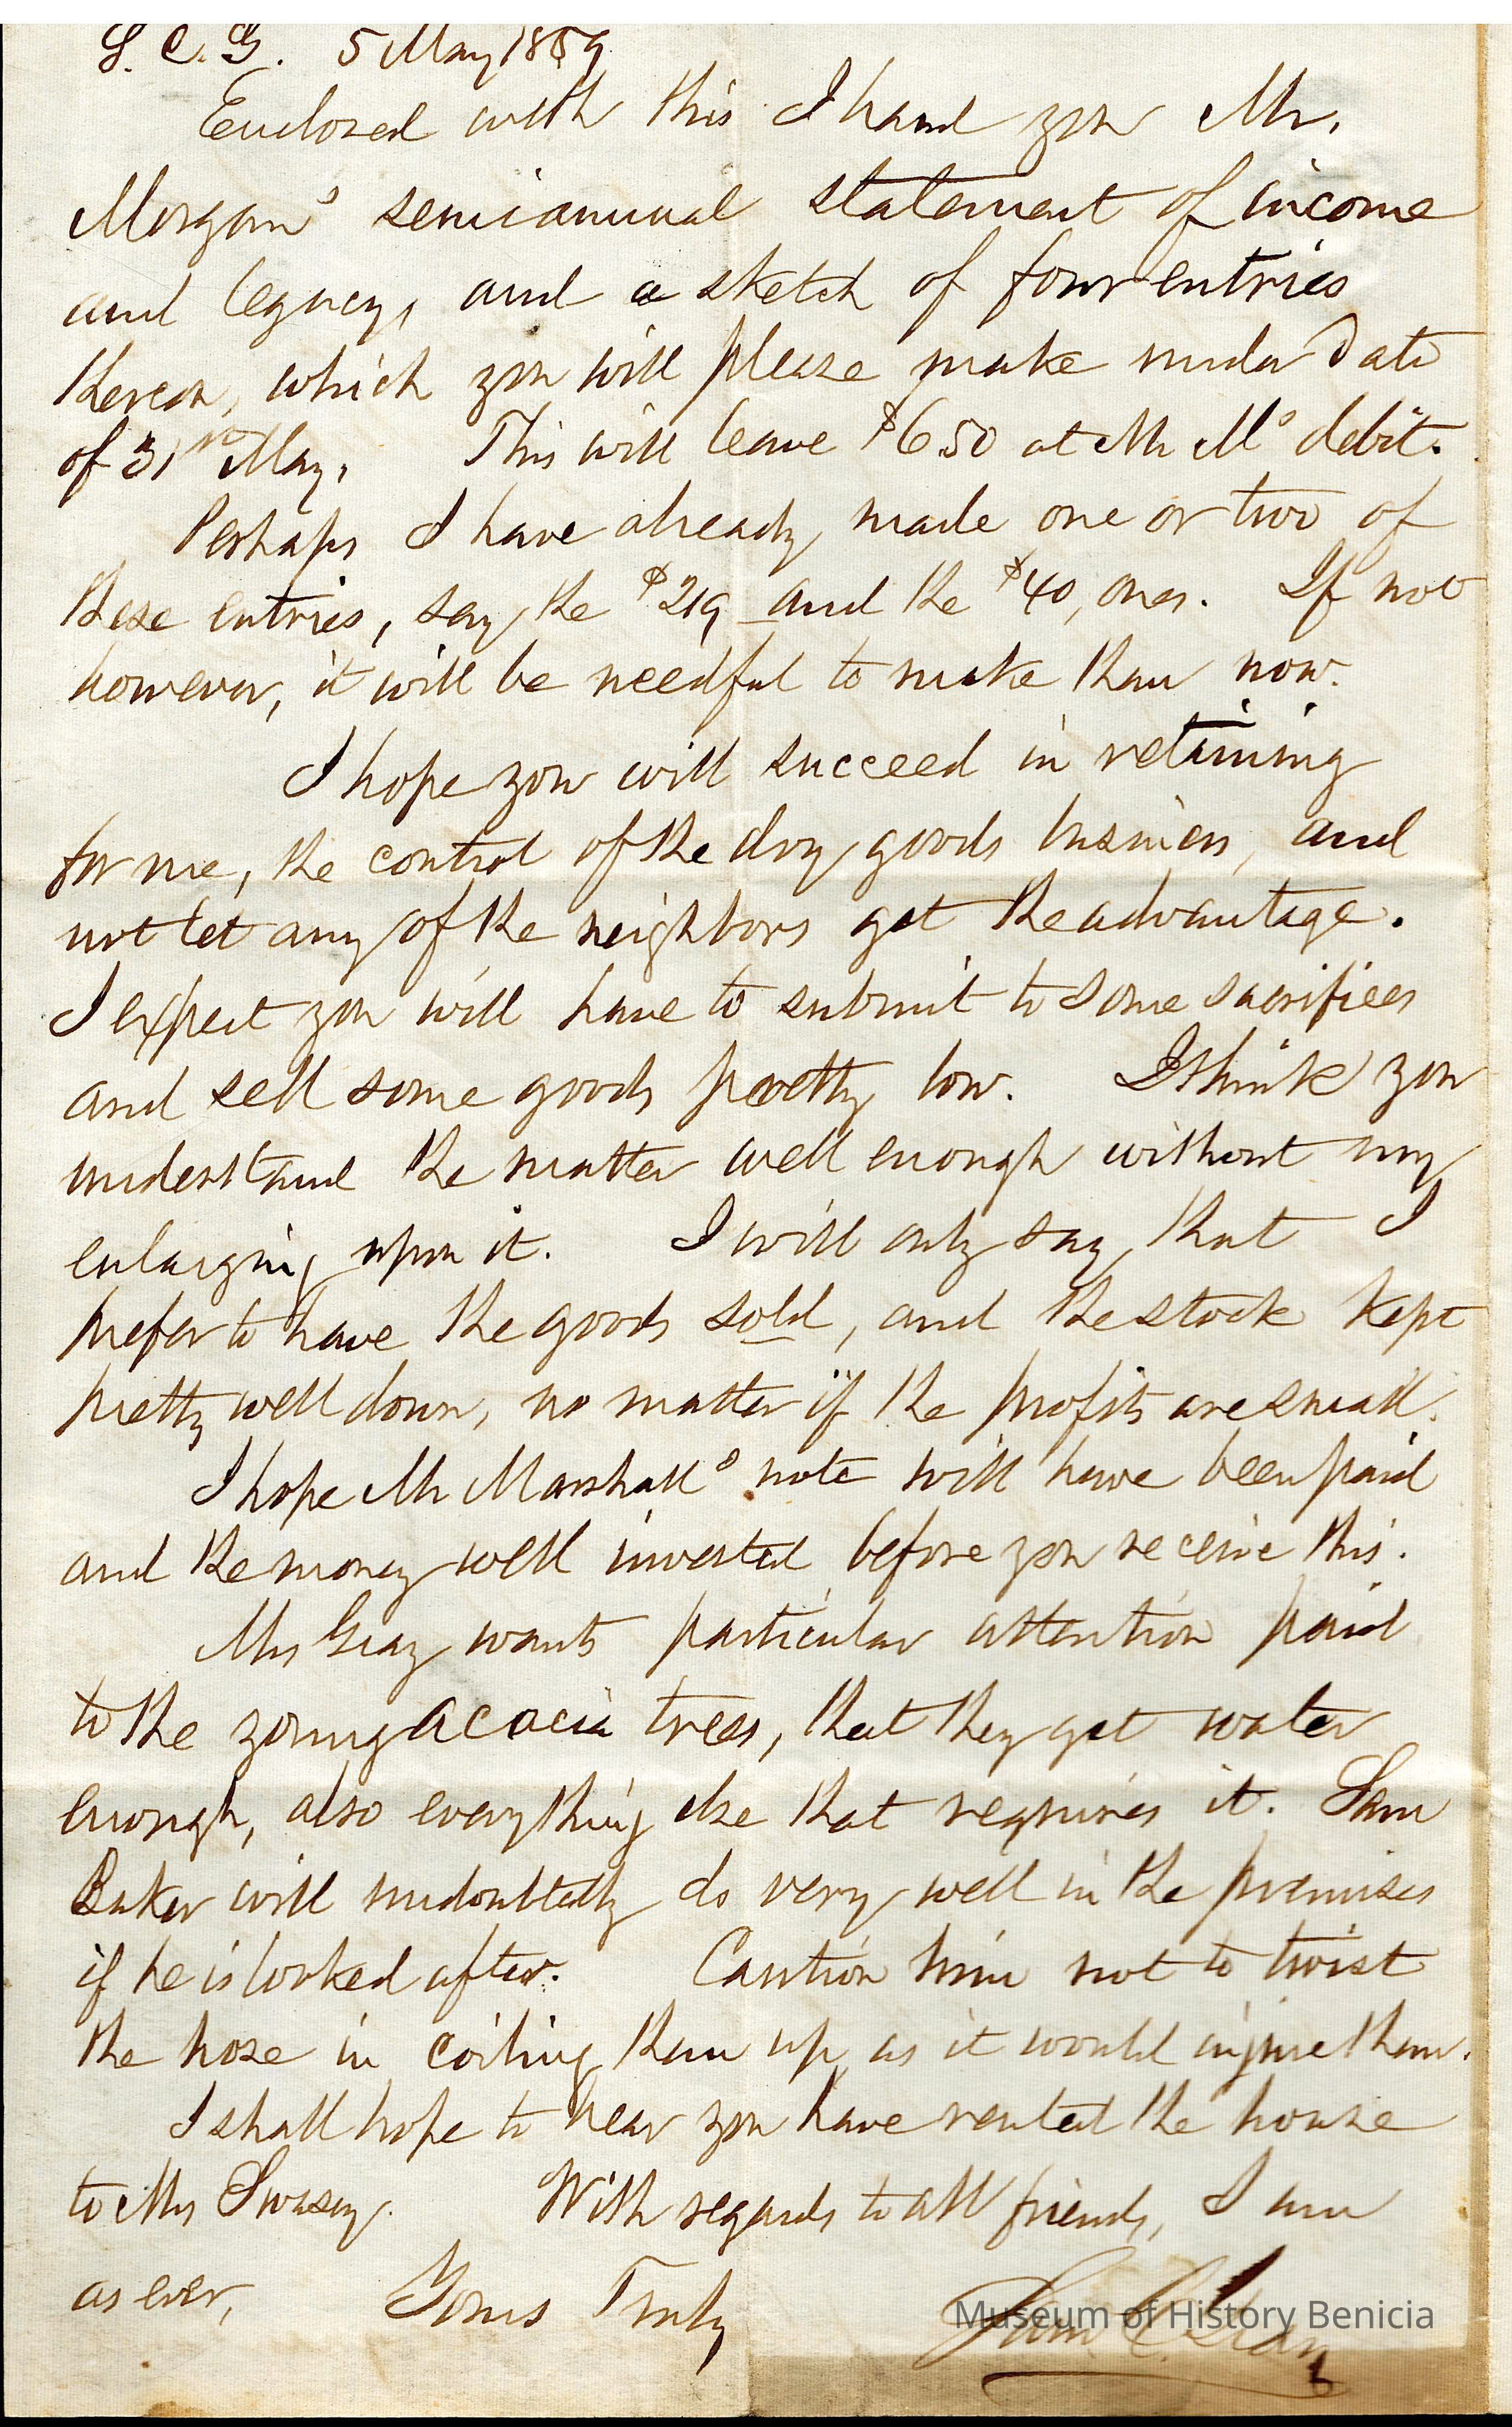 S. C. G. 5 May 1859
Enclosed with this I hand you Mr.
Morgan's semiannual statement of income
and legacy, and a sketch of four entries
thereon, which you will please make under date
of 31st May. This will leave $650 at Mr M's debit.
Perhaps I have already made one or two of
these entries, say the $219 and the $40, ones. If not
however, it will be needful to make them now.
I hope you will succeed in retaining
for me, the control of the dry goods business, and
not let any of the neighbors get the advantage.
I expect you will have to submit to some sacrifices
and sell some goods pretty low. I think you
understand the matter well enough without my
enlarging upon it. I will only say that I
prefer to have the goods sold, and the stock kept
pretty well down, no matter if the profits are small.
I hope Mr Marshall's note will have been paid
and the money well invested before you receive this.
Mrs Gray wants particular attention paid
to the young acacia trees, that they get water
enough, also everything else that requires it. Sam
Baker will undoubtedly do very well in the premises
if he is looked after. Caution him not to twist
the hose in coiling them up as it would injure them.
I shall hope to hear you have rented the house
to Mrs Swasey. With regards to all friends, I am
as ever, Yours Truly
Sam C. Gray
Museum of History Benicia